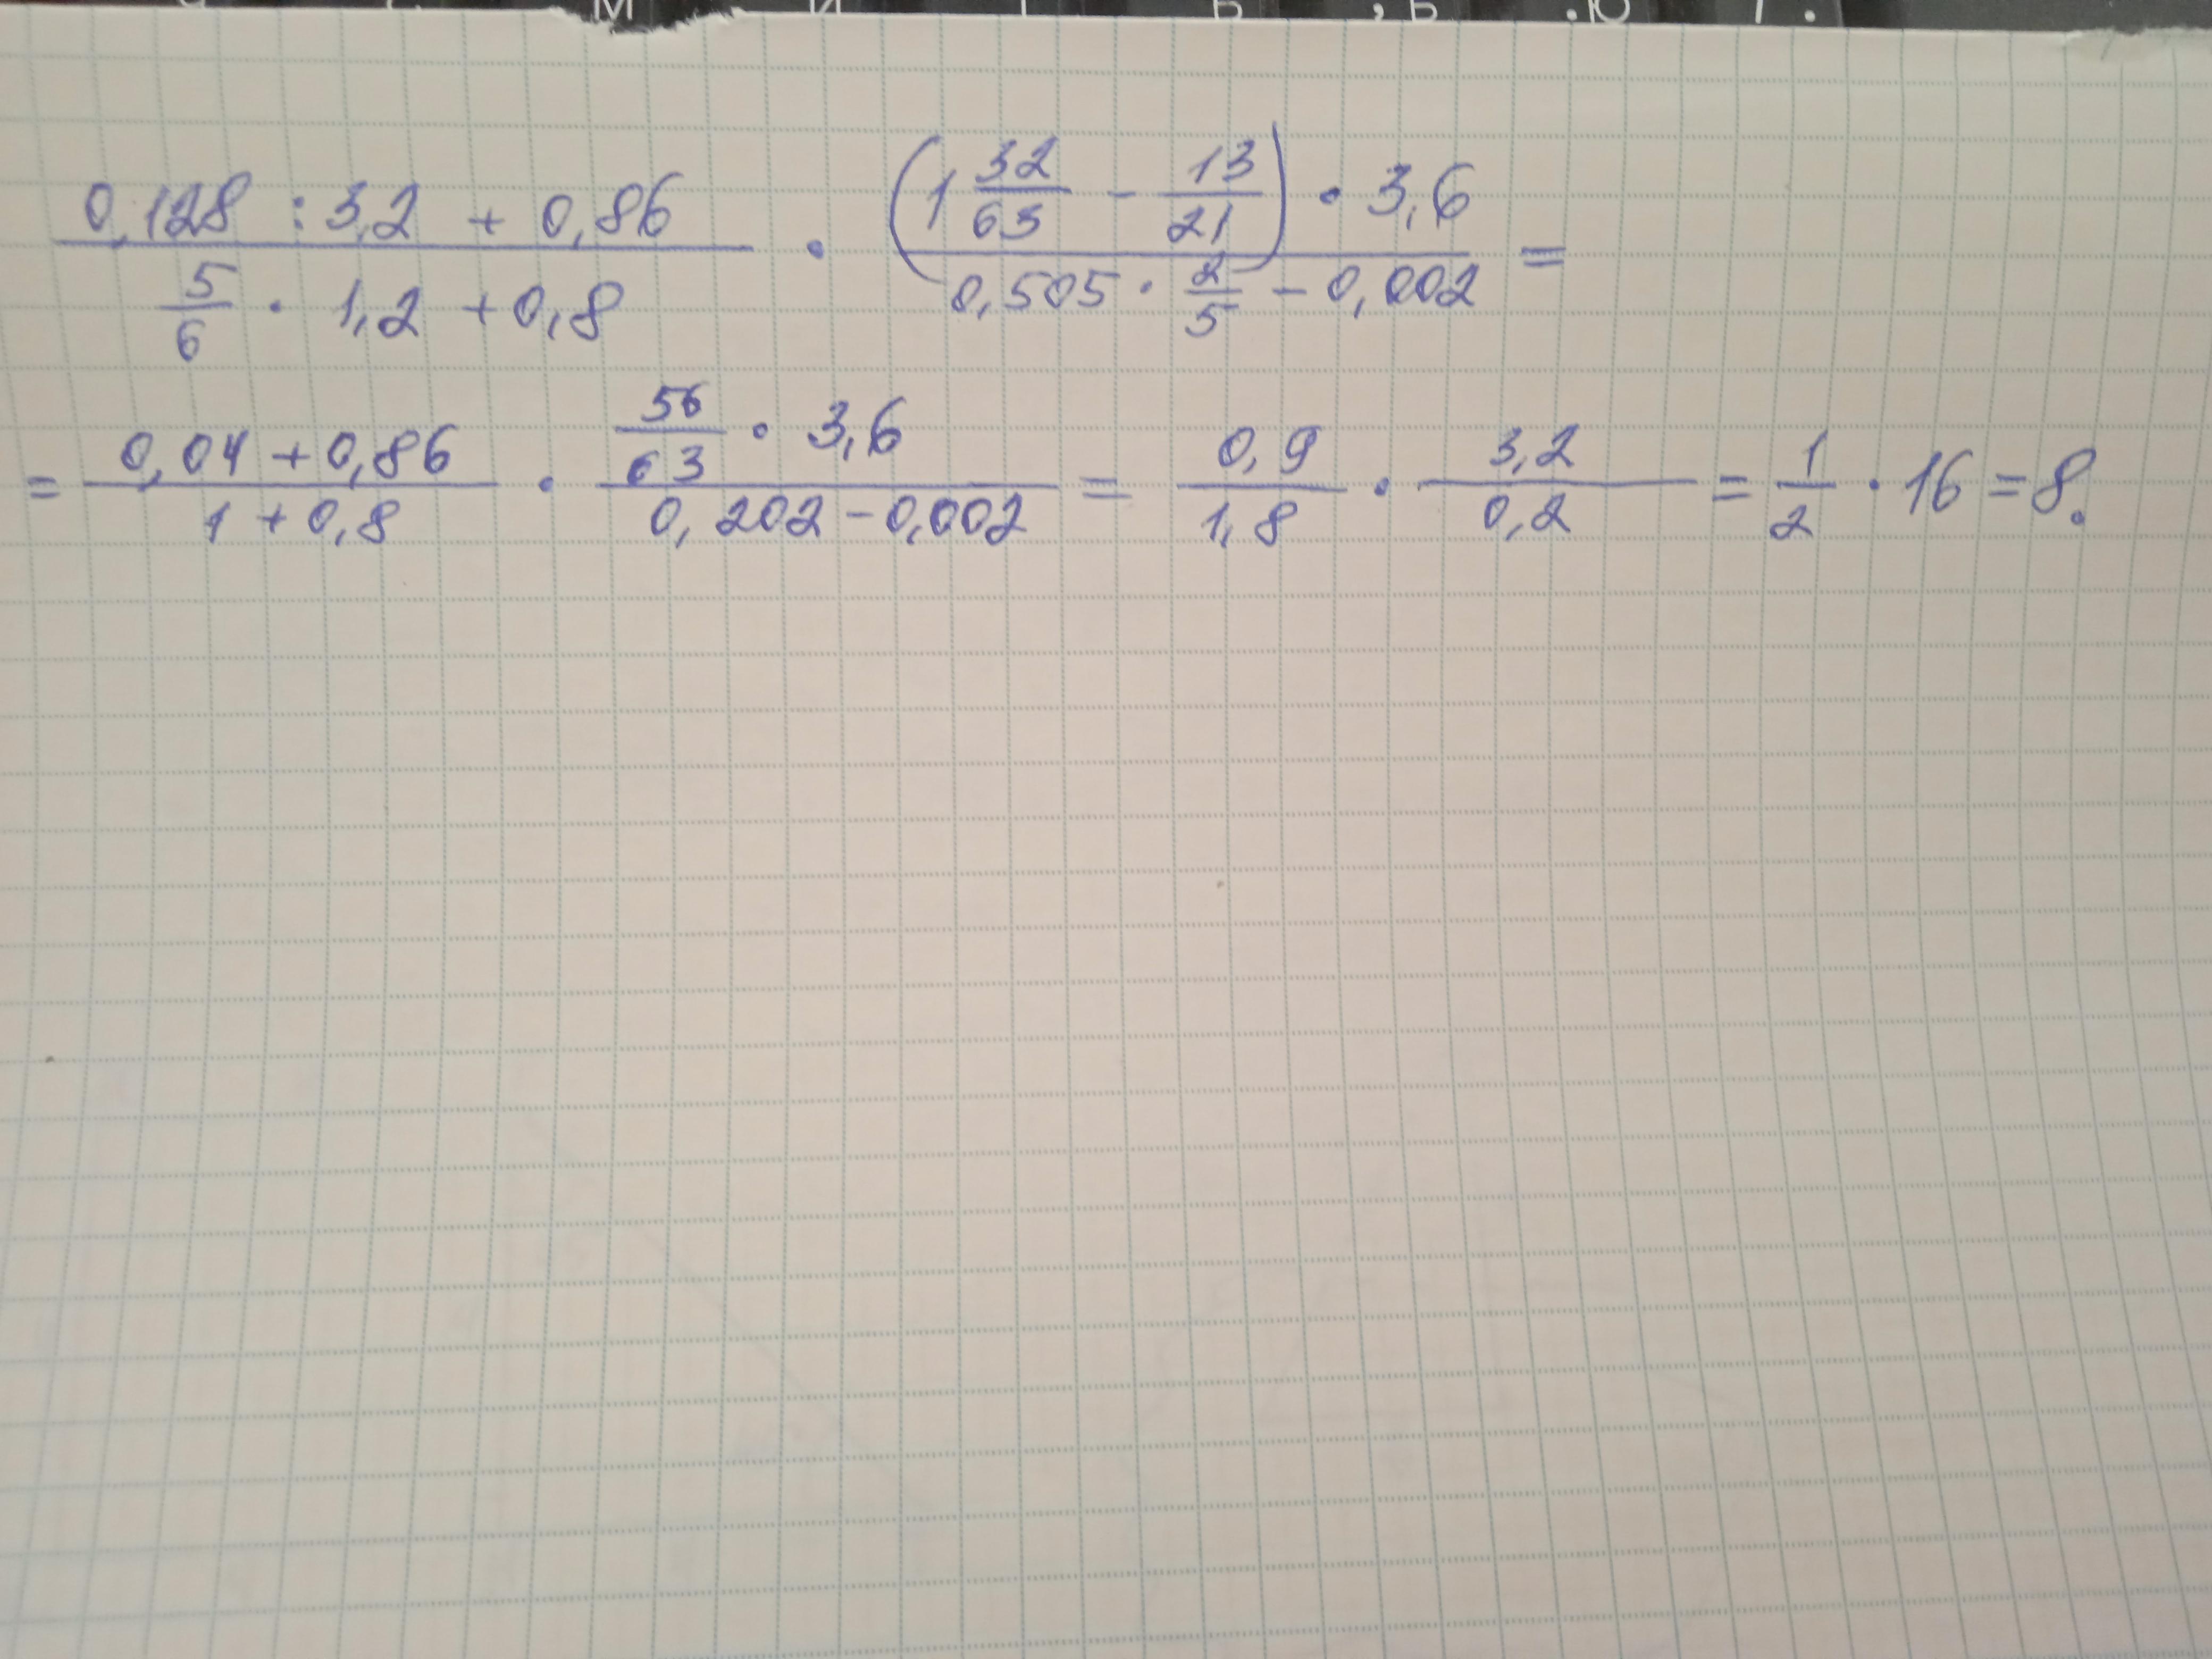 м и т ь , ъ . ю
(0,128 : 3,2 + 0,86) / (5/6 · 1,2 + 0,8) · ((1 32/63 - 13/21) · 3,6) / (0,505 · 2/5 - 0,002) =
= (0,04 + 0,86) / (1 + 0,8) · (56/63 · 3,6) / (0,202 - 0,002) = 0,9/1,8 · 3,2/0,2 = 1/2 · 16 = 8.